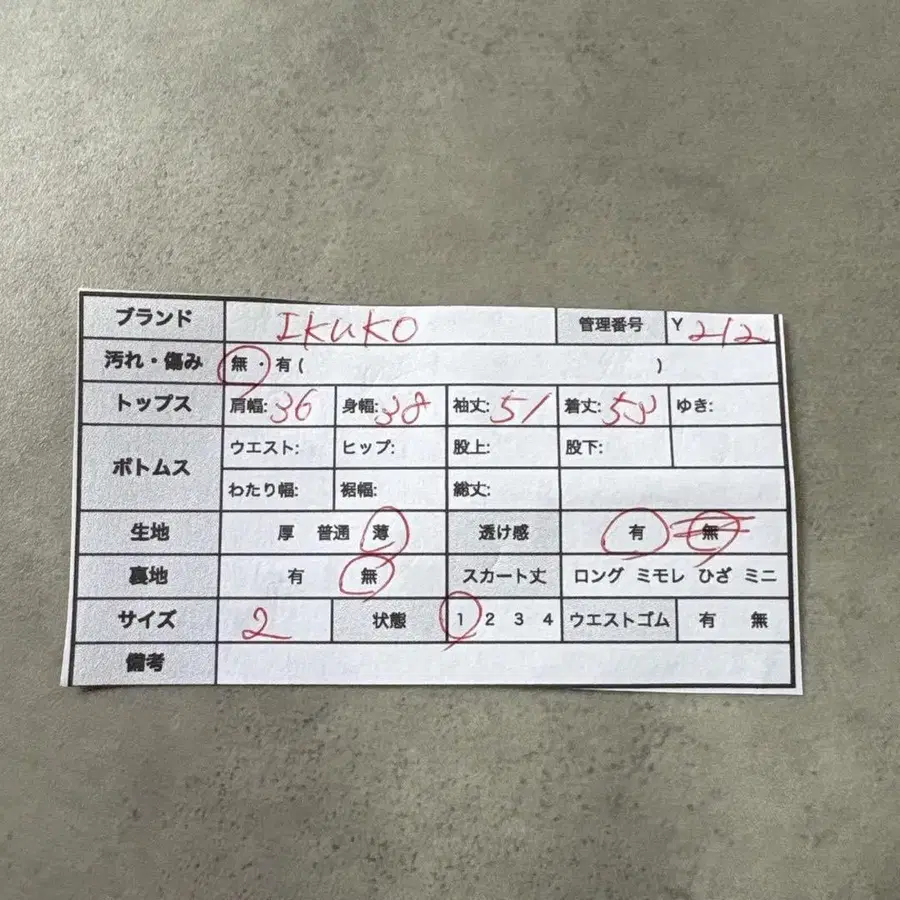 ブランド IKUKO 管理番号 Y 212
汚れ・傷み 無・有( )
トップス 肩幅:36 身幅:38 袖丈:51 着丈:53 ゆき:
ボトムス ウエスト: ヒップ: 股上: 股下:
わたり幅: 裾幅: 総丈:
生地 厚 普通 薄 透け感 有 無
裏地 有 無 スカート丈 ロング ミモレ ひざ ミニ
サイズ 2 状態 1 2 3 4 ウエストゴム 有 無
備考